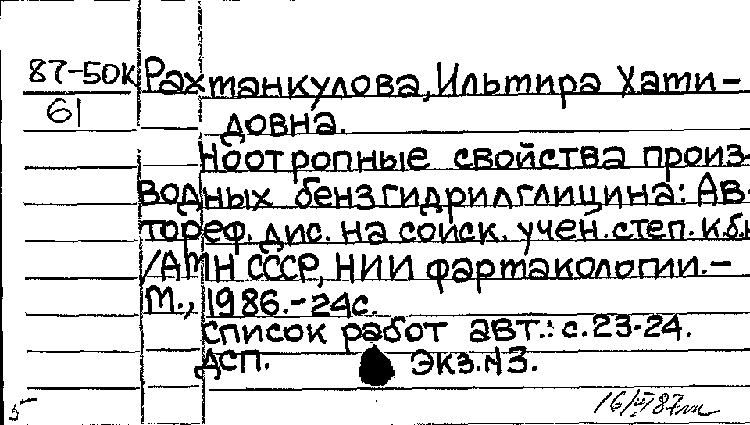 87-50к Рахтанкулова, Ильтира Хати-
61
довна.
Ноотропные свойства произ-
водных бензгидрилглицина: Ав-
тореф. дис. на соиск. учен. степ. к.б.н
/АМН СССР, НИИ фартакологии.-
М., 1986.-24с.
список работ авт.: с.23-24.
ДСП. Экз.N3.
5